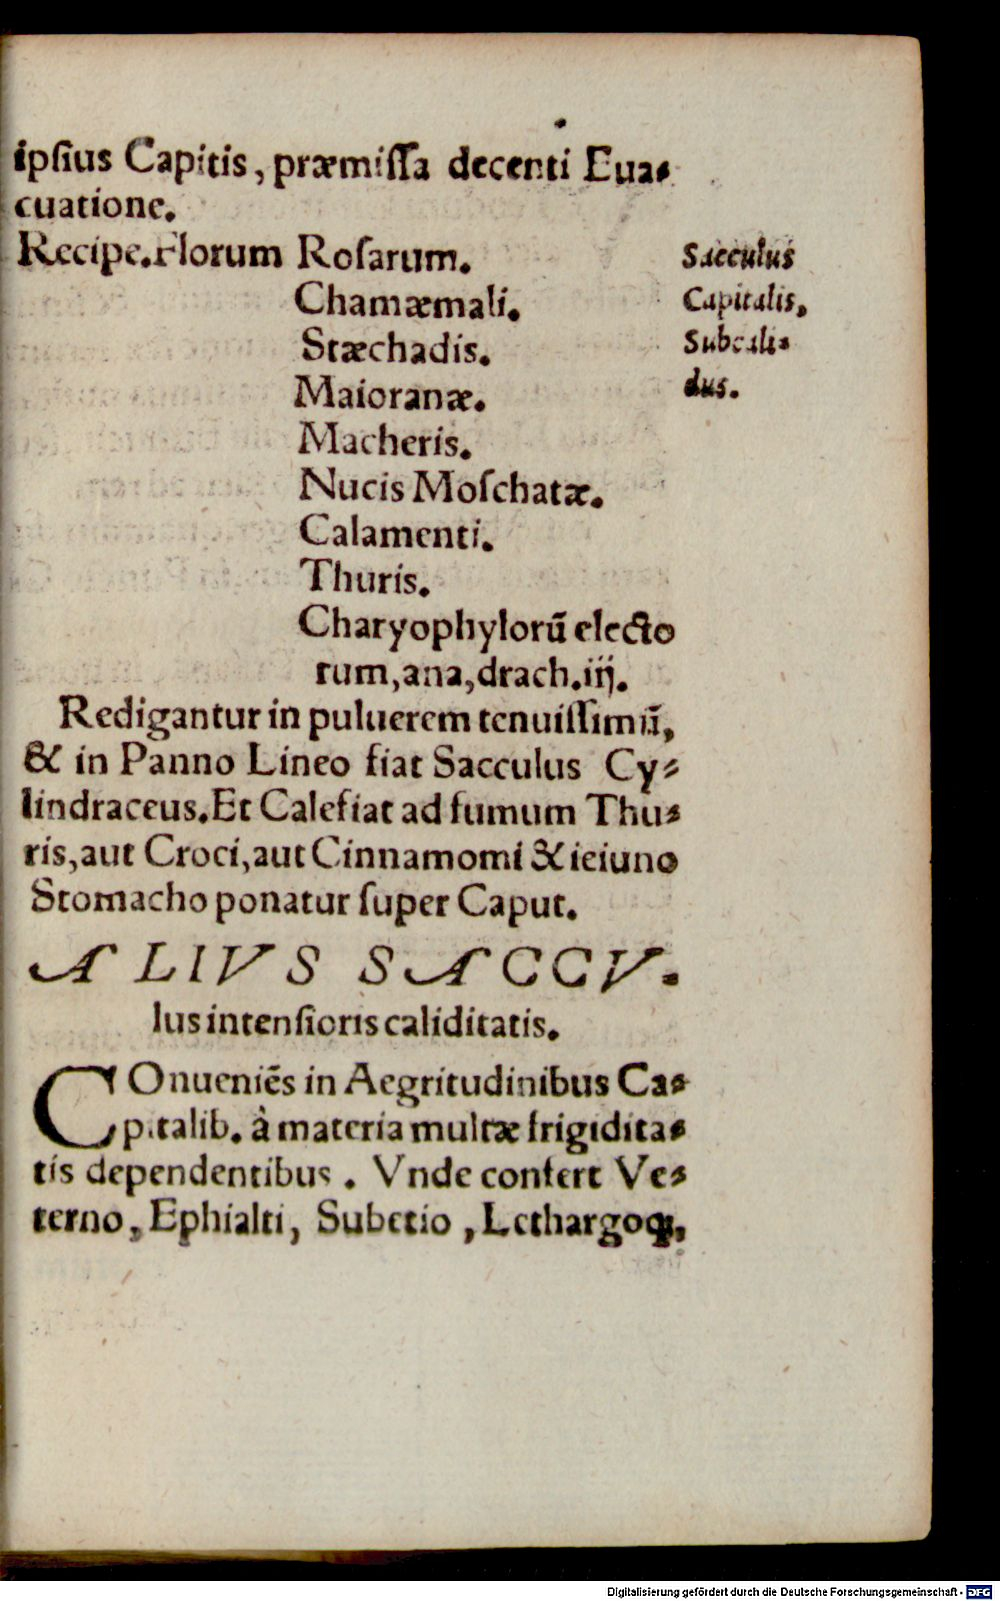 ipſius Capitis, præmiſſa decenti Eua-
cuatione.
Recipe. Florum Roſarum.
Chamæmali.
Stæchadis.
Maioranæ.
Macheris.
Nucis Moſchatæ.
Calamenti.
Thuris.
Charyophylorū electo
rum, ana, drach. iij.
Sacculus
Capitalis,
Subcali-
dus.
Redigantur in puluerem tenuiſſimū,
& in Panno Lineo fiat Sacculus Cy-
lindraceus. Et Calefiat ad fumum Thu-
ris, aut Croci, aut Cinnamomi & ieiuno
Stomacho ponatur ſuper Caput.
ALIVS SACCV-
lus intenſioris caliditatis.
COnueniēs in Aegritudinibus Ca-
pitalib. à materia multæ frigidita-
tis dependentibus. Vnde confert Ve-
terno, Ephialti, Subetio, Lethargoq̃,
Digitalisierung gefördert durch die Deutsche Forschungsgemeinschaft - DFG